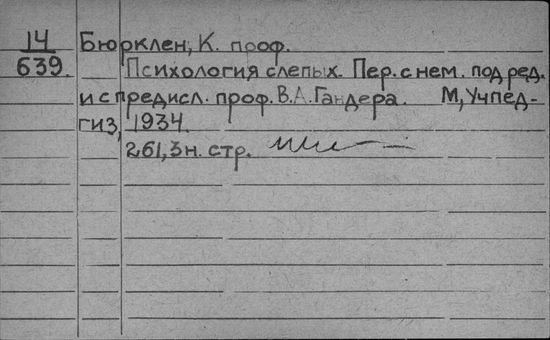 14 Бюрклен, К. проф.
639. Психология слепых. Пер. с нем. под ред.
и с предисл. проф. В.А. Гандера. М, Учпед-
гиз, 1934.
261, 3 н. стр.